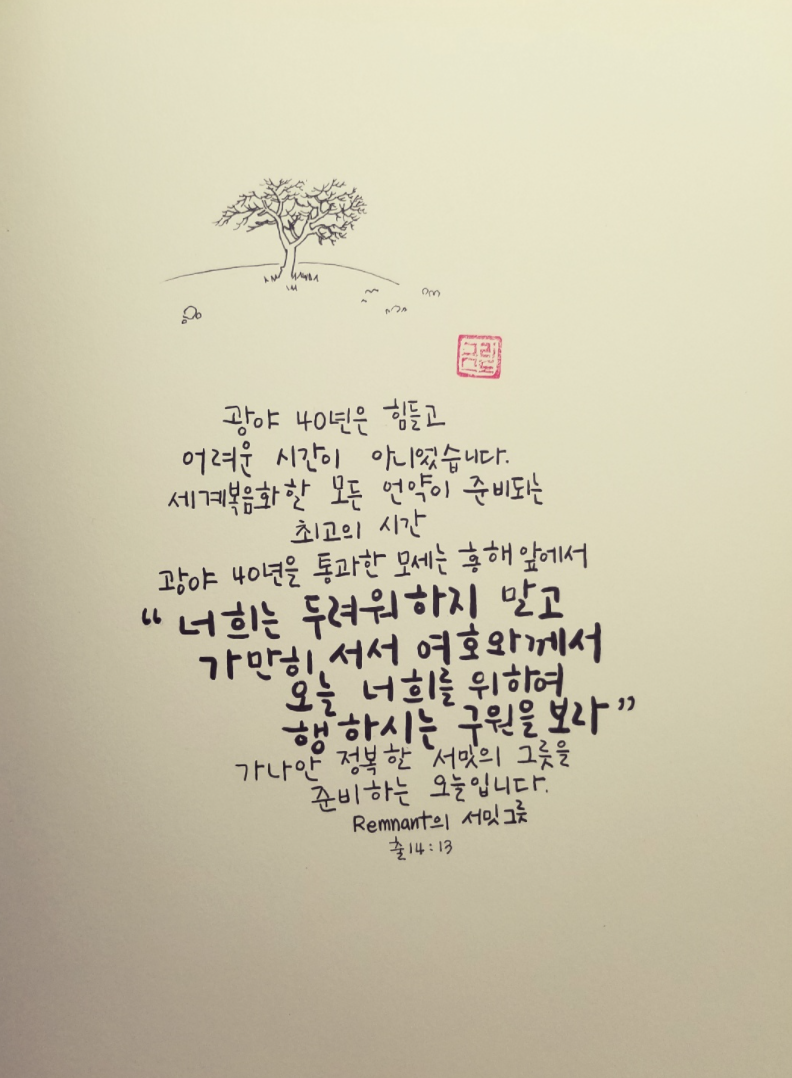 광야 40년은 힘들고
어려운 시간이 아니었습니다.
세계복음화할 모든 언약이 준비되는
최고의 시간
광야 40년을 통과한 모세는 홍해 앞에서
“너희는 두려워하지 말고
가만히 서서 여호와께서
오늘 너희를 위하여
행하시는 구원을 보라”
가나안 정복할 서밋의 그릇을
준비하는 오늘입니다.
Remnant의 서밋그릇
출14:13